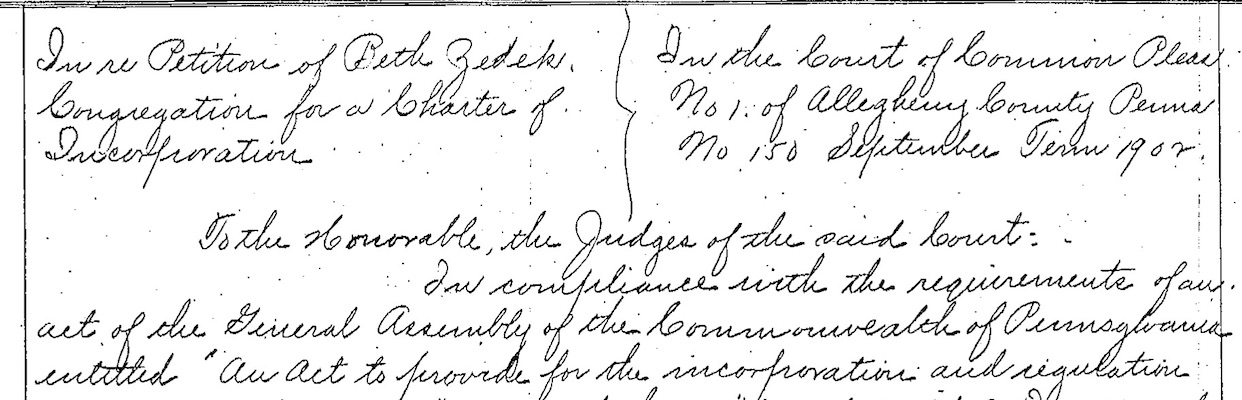 In re Petition of Beth Zedek.
Congregation for a Charter of
Incorporation
In the Court of Common Pleas
No 1. of Allegheny County Penna
No 150 September Term 1902.
To the Honorable, the Judges of the said Court:
In compliance with the requirements of an
act of the General Assembly of the Commonwealth of Pennsylvania
entitled "An Act to provide for the incorporation and regulation